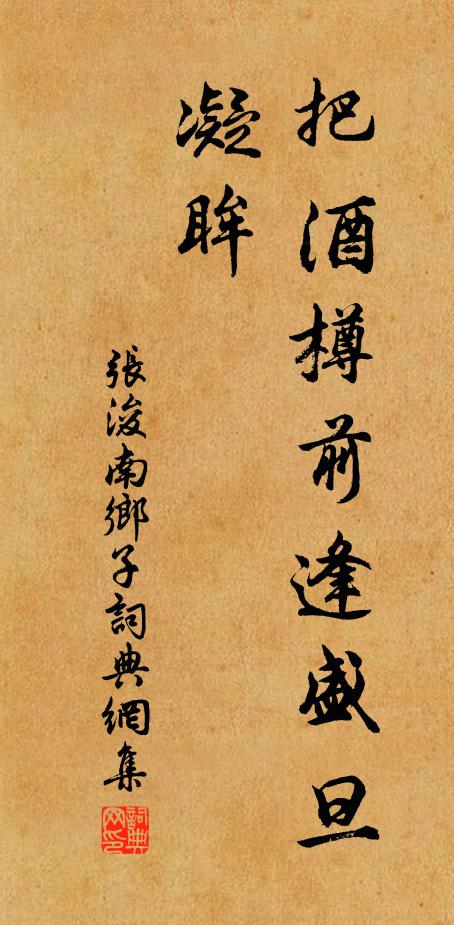 把酒樽前逢盛旦
凝眸
張浚南鄉子詞典網集
詞典网印